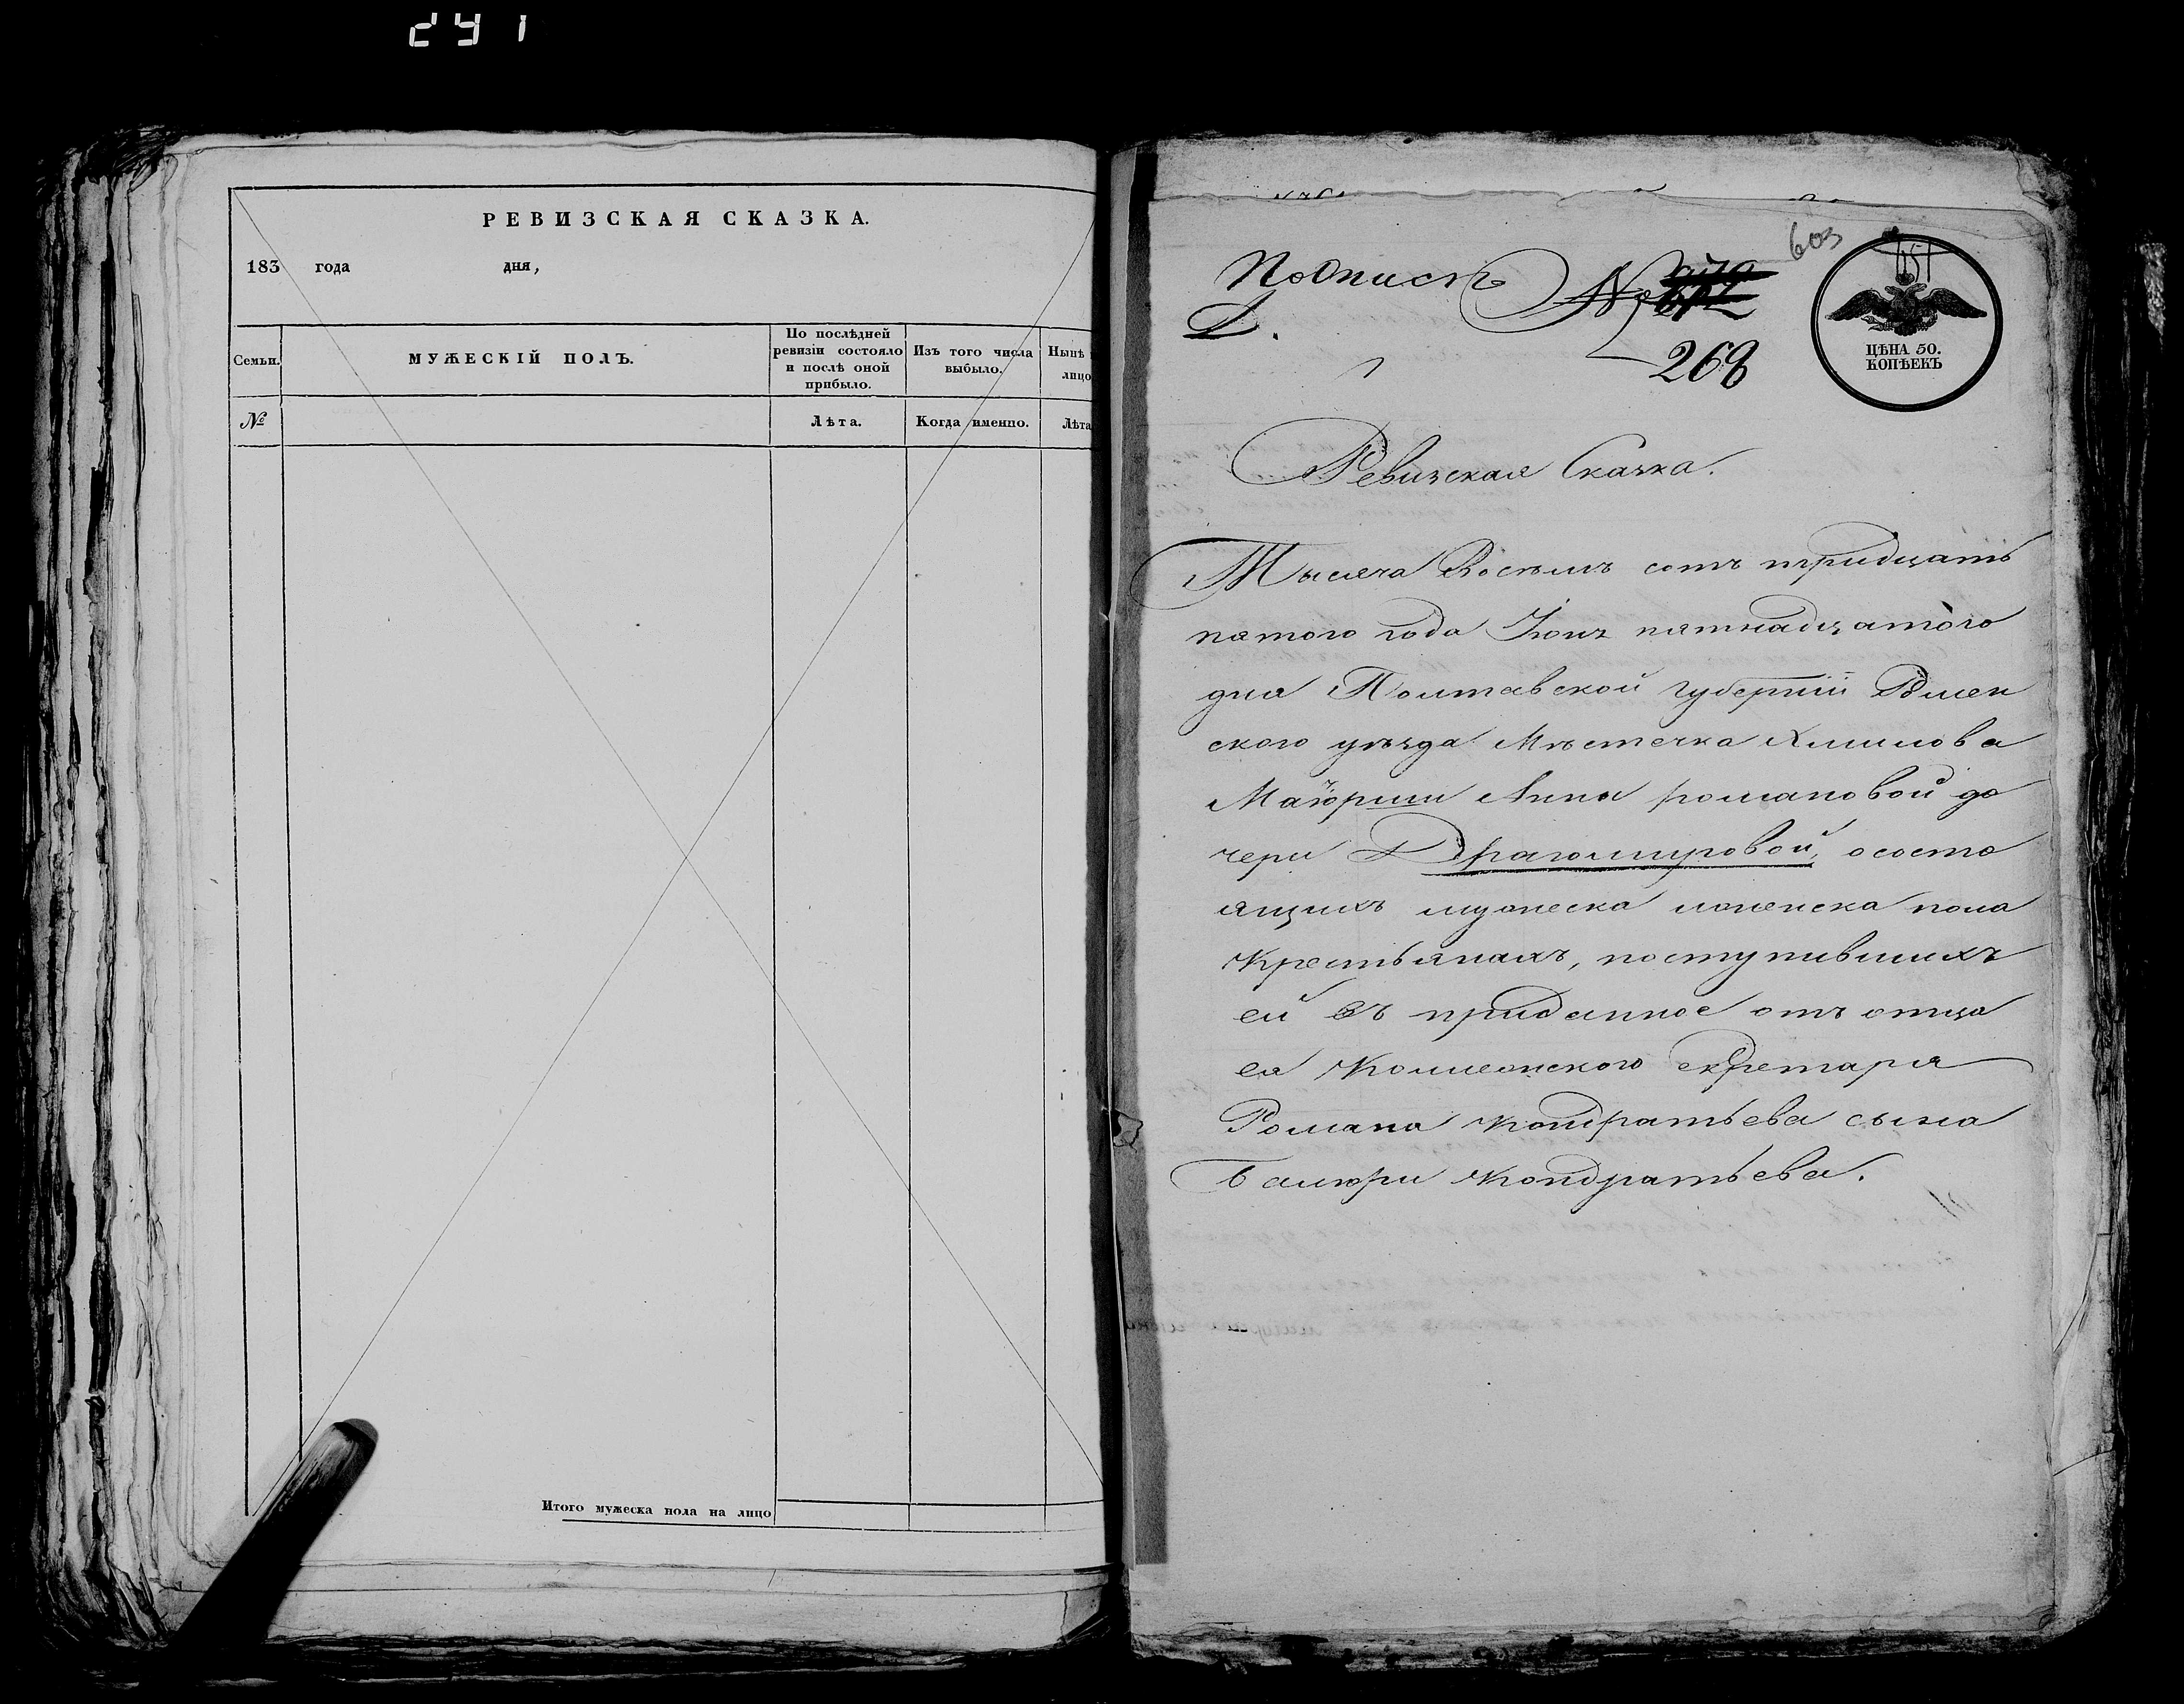 241
РЕВИЗСКАЯ СКАЗКА.
183 года дня,
Семьи.
МУЖЕСКІЙ ПОЛЪ.
По послѣдней
ревизіи состояло
и послѣ оной
прибыло.
Изъ того числа
выбыло.
Нынѣ
лицо
№
Лѣта.
Когда именно.
Лѣта
Итого мужеска пола на лицо
603
651
№
268
ЦѢНА 50.
КОПѢЕКЪ
Ревизская Сказка.
Тысяча Восемь сотъ тридцать
пятого года Іюня пятнадцатого
дня Полтавской губерніи Ромен
ского уѣзда Мѣстечка Хмилова
Маіорши Анны романовой до
чери Драгомировой, ососто
ящихъ мужеска иженска пола
крестьянахъ, поступившихъ
ей въ приданное отъ отца
ея Коллежского секретаря
Романа Кондратьева сына
Кондратьева.